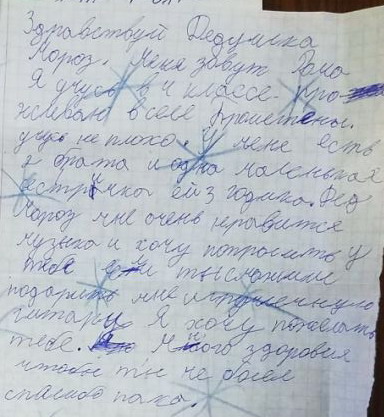 Здравствуй Дедушка
Мороз. Меня завут Рома
Я учусь в 4 классе. Про-
живаю в селе
учусь не плохо. У меня есть
2 брата и одна маленькая
сестрычка ей 3 годика. Дед
Мороз мне очень нравится
музыка и хочу попросить у
тебя если ты сможешь
подарить мне
гитару Я хочу пожелать
тебе. Много здоровия
чтобы ты не болел
спасибо пака.